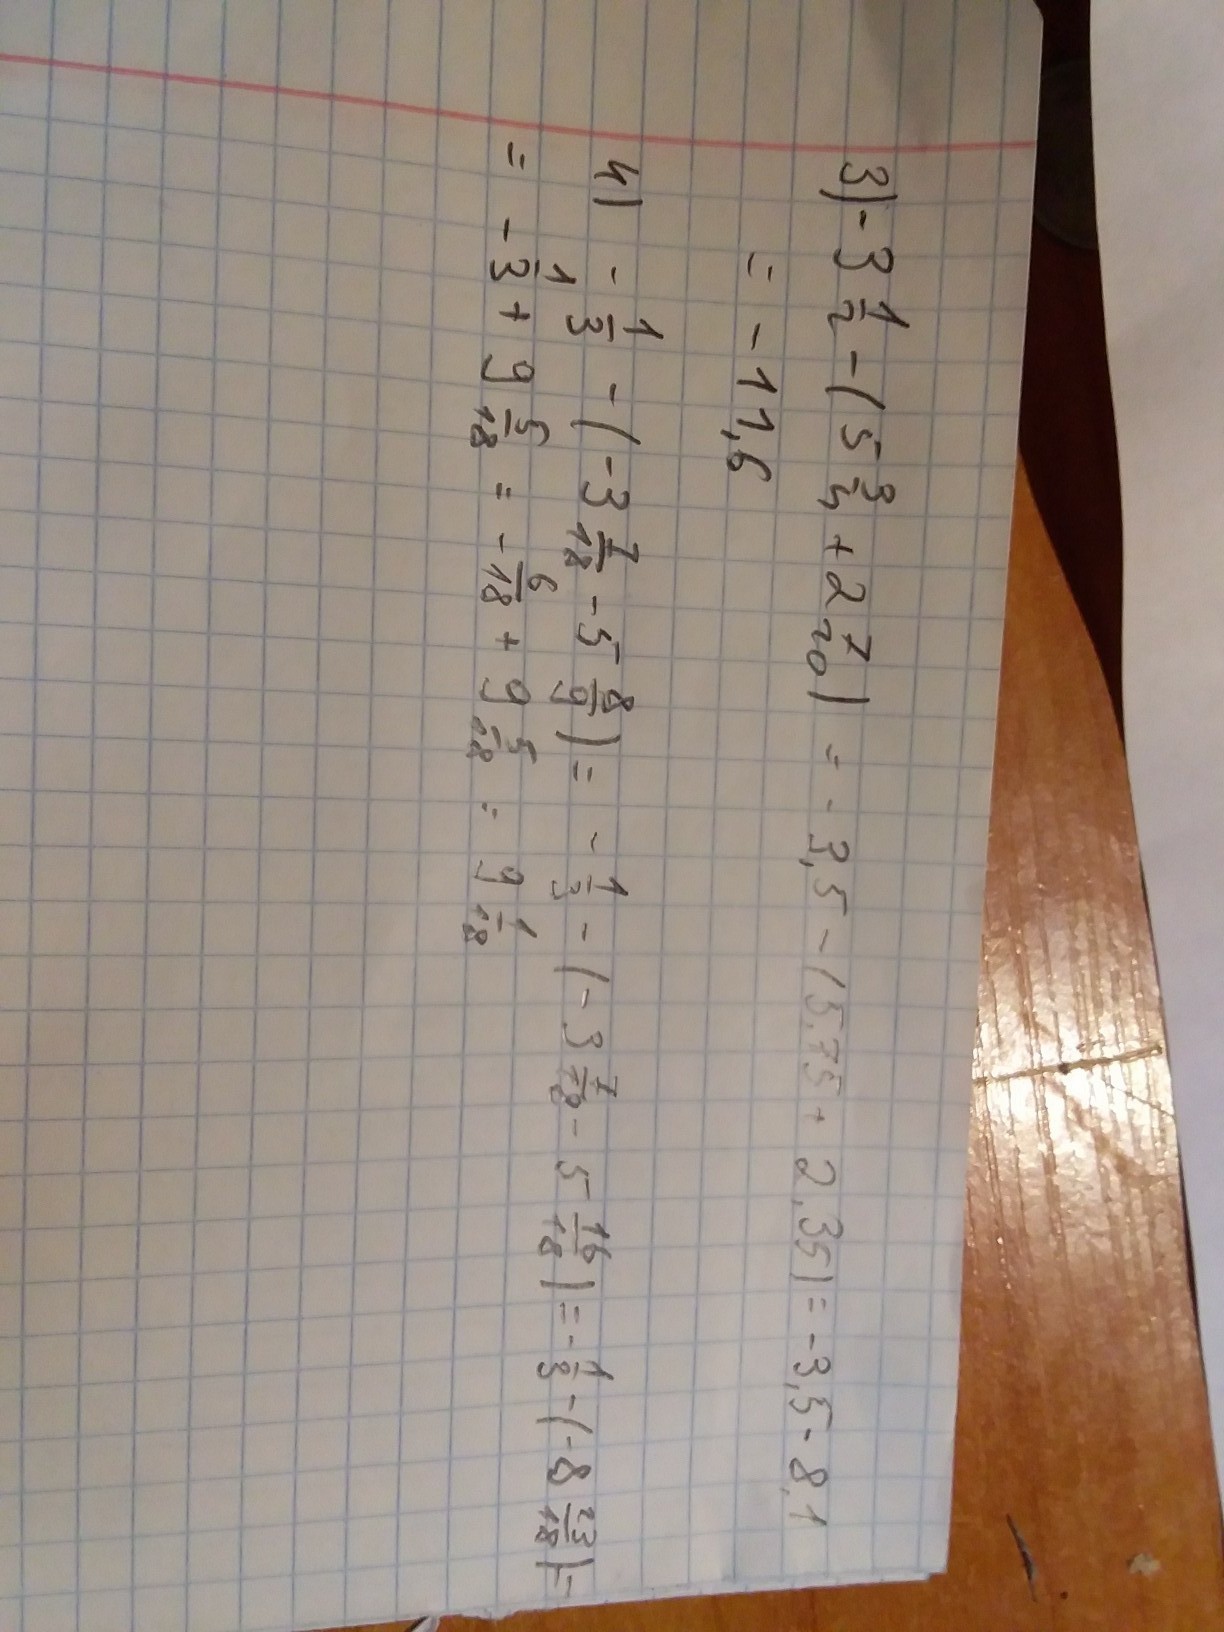 3) -3 1/2 - (5 3/4 + 2 7/20) = -3,5 - (5,75 + 2,35) = -3,5 - 8,1
= -11,6
4) - 1/3 - (-3 7/18 - 5 8/9) = - 1/3 - (-3 7/18 - 5 16/18) = - 1/3 - (-8 23/18) =
= - 1/3 + 9 5/18 = - 6/18 + 9 5/18 = 9 1/18